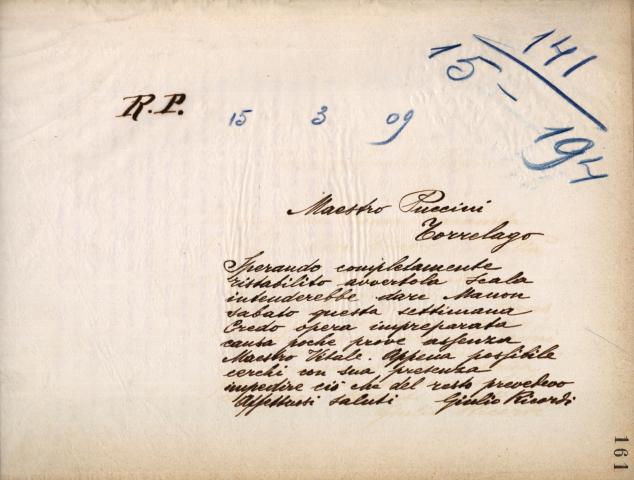 141
15 –
194
R.P. 15 3 09
Maestro Puccini
Torrelago
Sperando completamente
ristabilito avvertola Scala
intenderebbe dare Manon
sabato questa settimana
Credo opera impreparata
causa poche prove assenza
Maestro Vitale. Appena possibile
cerchi con sua presenza
impedire ciò che del resto prevedevo
Affettuosi saluti Giulio Ricordi
161